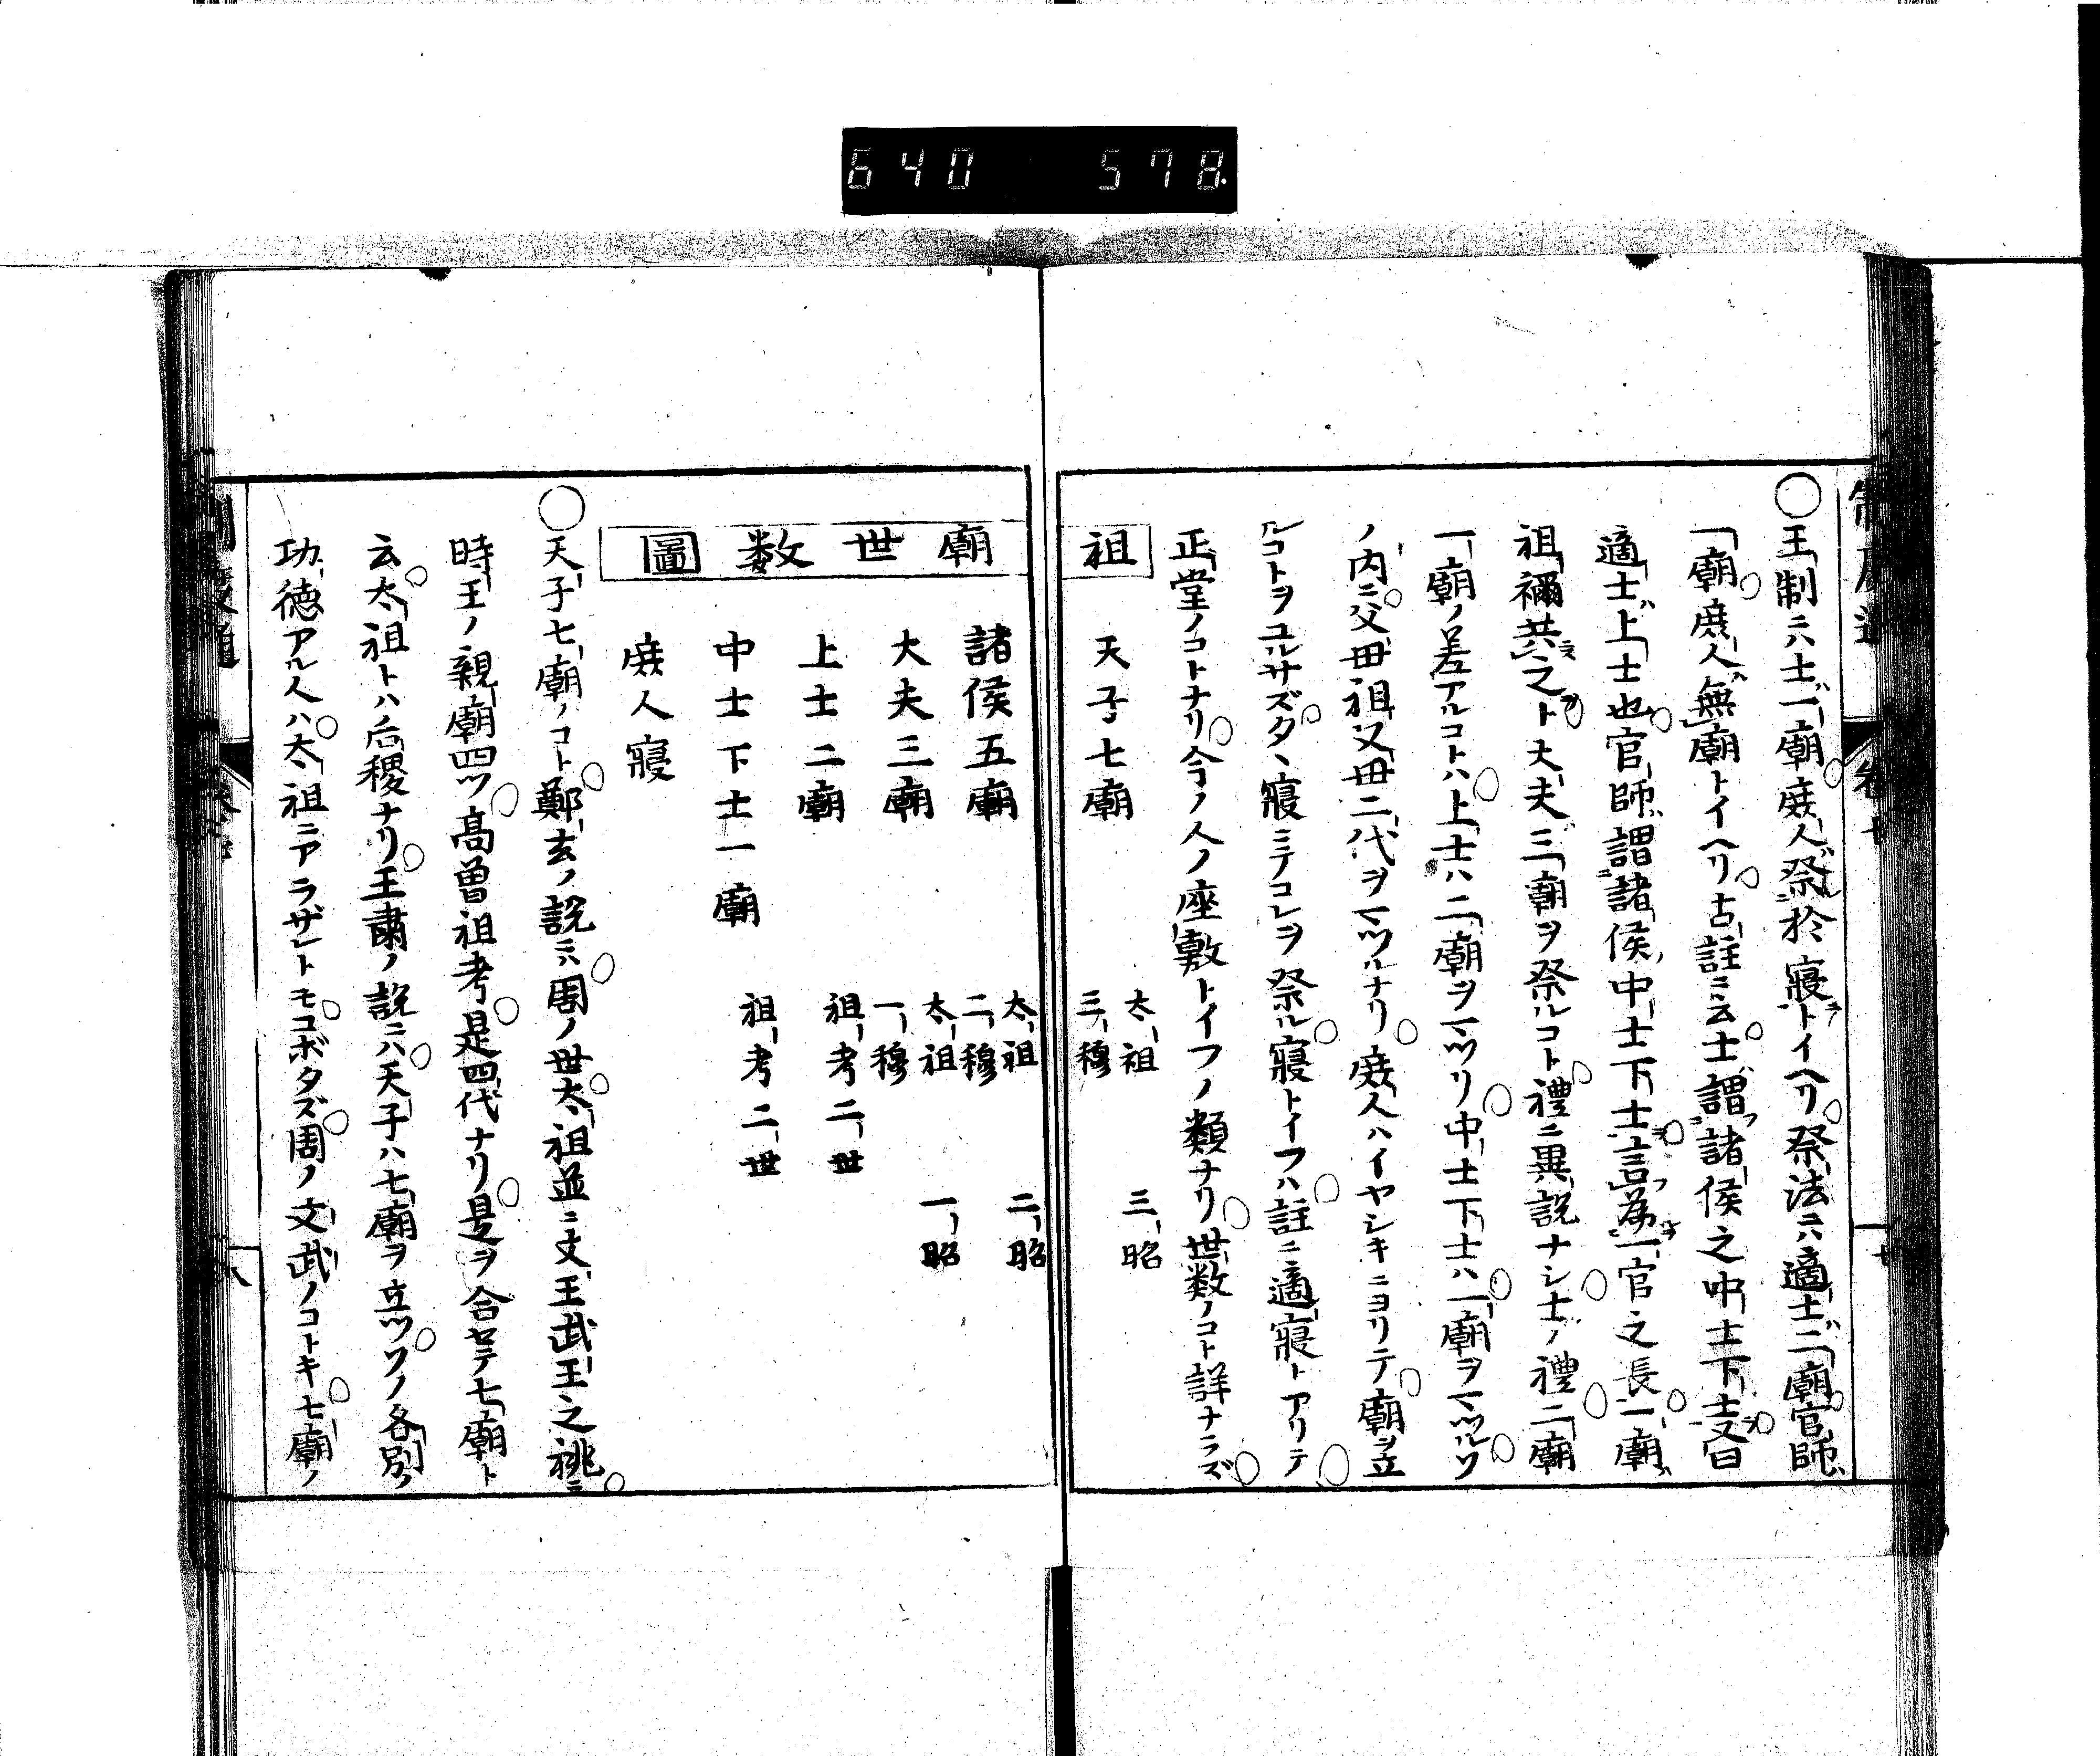 640 578
○王制ニハ士一廟庶人祭於寢トイヘリ祭法ニハ適士二廟官師
一廟庶人無廟トイヘリ古註ニ云士謂諸侯之中士下士又曰
適士上士也官師謂諸侯中士下士言為一官之長一廟
祖禰共之ト大夫三廟ヲ祭ルコト禮ニ異説ナシ士ノ禮二廟
一廟ノ差アルコトハ上士ハ二廟ヲマツリ中士下士ハ一廟ヲマツルソ
ノ内ニ父母祖父母二代ヲマツルナリ庶人ハイヤシキニヨリテ廟ヲ立
ルコトヲユルサズタヽ寢ニテコレヲ祭ル寢トイフハ註ニ適寢トアリテ
正堂ノコトナリ今ノ人ノ座敷トイフノ類ナリ世数ノコト詳ナラズ
祖廟世数圖
天子七廟 太祖 三昭 三穆
諸侯五廟 太祖 二昭 二穆
大夫三廟 太祖 一昭 一穆
上士二廟 祖考二世
中士下士一廟 祖考二世
庶人寢
○天子七廟ノコト鄭玄ノ説ニハ周ノ世太祖並ニ文王武王之祧ニ
時王ノ親廟四ツ高曽祖考是四代ナリ是ヲ合セテ七廟ト
云太祖トハ后稷ナリ王肅ノ説ニハ天子ハ七廟ヲ立ツソノ各別ノ
功徳アル人ハ太祖ニアラザレトモコボタズ周ノ文武ノコトキ七廟ノ